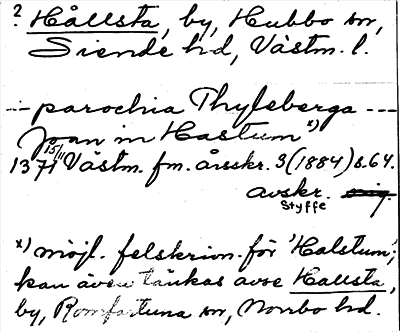 ? Hållsta, by, Hubbo sn,
Siende hd, Västm. l.
--- parochia Thylsberga ---
Joan in Hastum x)
1371 15/11 Västm. fm. årsskr. 3 (1884) s. 64.
avskr. orig.
Styffe
x) möjl. felskrivn. för 'Halstum';
kan även tänkas avse Hallsta,
by, Romfartuna sn, Norrbo hd.